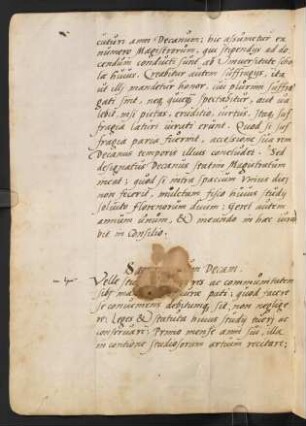 cuturi anni Decanum; hic assumetur ex
numero Magistrorum, qui stipendijs ad do-
cendum conducti sunt ab Universitate scho-
lae huius. Creabitur autem suffragijs, ita
ut illj mandetur honor, cui plurimi suffra-
gati sint, neq; quicq; spectabitur, aut va-
lebit, nisi pietas, eruditio, virtus. Itaq; suf-
fragia laturi iurati erunt. Quod si suf-
fragia paria fuerint, accessione sua rem
Decanus temporis illius concludet. Sed
designatus Decanus statim Magistratum
ineat; quod si intra spacium unius diei
non fecerit, mulctam fisco huius studij
soluito florenorum decem; Geret autem
annum unum, & ineundo in haec iura-
bit in Consilio.
Decani.
Velle ac communitatem
sibj curae pati; quod facere
se convenienti debitumq; sit, non neglige-
re. Leges & statuta huius studij tuerj ac
conservare; Primo mense anni sui, illa
in contione studiosorum artium recitare;